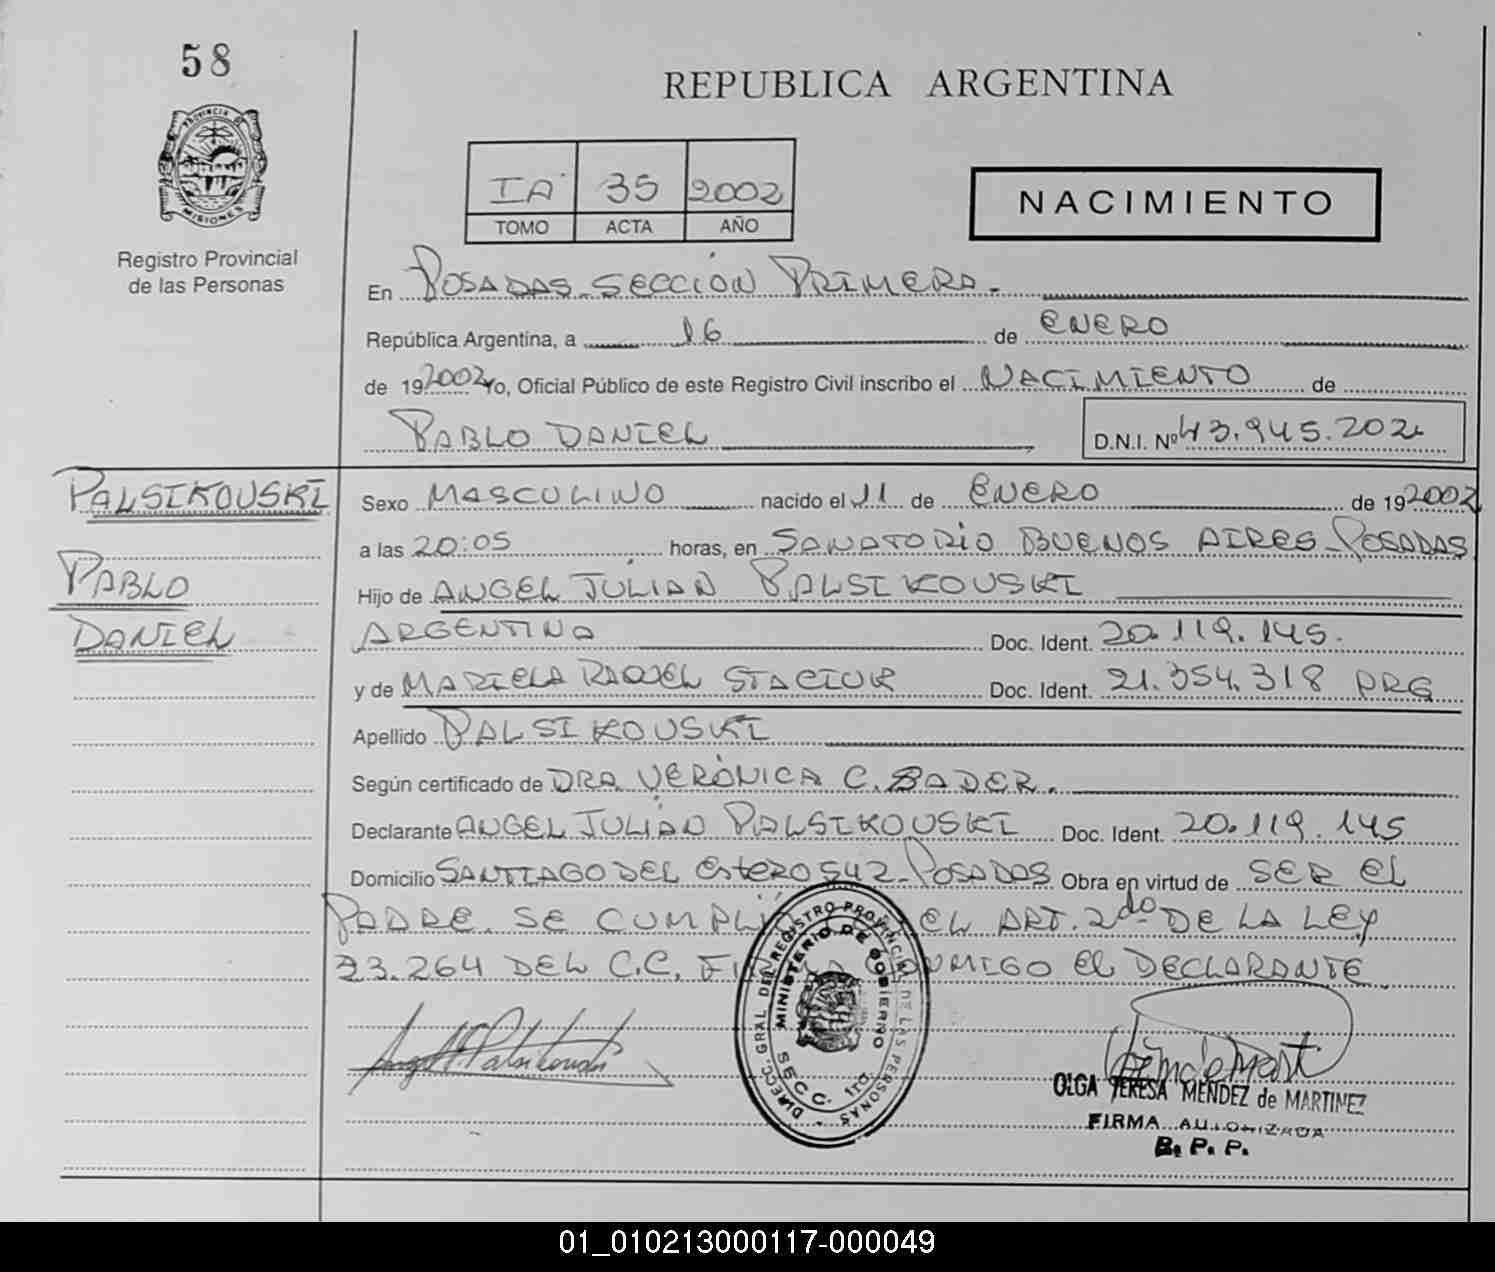 58
PROVINCIA DE
MISIONES
Registro Provincial
de las Personas
REPUBLICA ARGENTINA
IA 35 2002
TOMO ACTA AÑO
NACIMIENTO
En POSADAS. SECCIÓN PRIMERA.
República Argentina, a 16 de ENERO
de 19 2002 Yo, Oficial Público de este Registro Civil inscribo el NACIMIENTO de
PABLO DANIEL D.N.I. Nº 43.945.202
PALSIKOUSKI
PABLO
DANIEL
Sexo MASCULINO nacido el 11 de ENERO de 19 2002
a las 20:05 horas, en SANATORIO BUENOS AIRES - POSADAS
Hijo de ANGEL JULIAN PALSIKOUSKI
ARGENTINO Doc. Ident. 20.119.145.
y de MARIELA RAQUEL STACIUK Doc. Ident. 21.354.318 ARG
Apellido PALSIKOUSKI
Según certificado de DRA. VERÓNICA C. BADER.
Declarante ANGEL JULIÁN PALSIKOUSKI Doc. Ident. 20.119.145
Domicilio SANTIAGO DEL ESTERO 542 - POSADAS Obra en virtud de SER EL
PADRE. SE CUMPLIÓ EL ART. 2do DE LA LEY
23.264 DEL C.C. FIRMA CONMIGO EL DECLARANTE
DIRECC. GRAL DEL REGISTRO PROVINCIAL DE LAS PERSONAS
MINISTERIO DE GOBIERNO
SECC. 1ra.
OLGA TERESA MENDEZ de MARTINEZ
FIRMA AUTORIZADA
R. P. P.
01_010213000117-000049